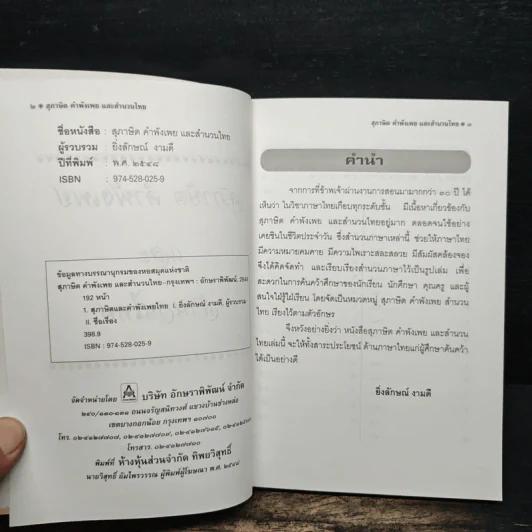 ๒ * สุภาษิต คำพังเพย และสำนวนไทย
ชื่อหนังสือ : สุภาษิต คำพังเพย และสำนวนไทย
ผู้รวบรวม : ยิ่งลักษณ์ งามดี
ปีที่พิมพ์ : พ.ศ. ๒๕๔๘
ISBN : 974-528-025-9
ข้อมูลทางบรรณานุกรมของหอสมุดแห่งชาติ
สุภาษิต คำพังเพย และสำนวนไทย--กรุงเทพฯ : อักษราพิพัฒน์, 254
192 หน้า
1. สุภาษิตและคำพังเพยไทย I. ยิ่งลักษณ์ งามดี, ผู้รวบรวม
II. ชื่อเรื่อง
398.9
ISBN : 974-528-025-9
จัดจำหน่ายโดย บริษัท อักษราพิพัฒน์ จำกัด
ถนนจรัญสนิทวงศ์ แขวงบ้านช่างหล่อ
เขตบางกอกน้อย กรุงเทพฯ ๑๐๗๐๐
โทร.
โทรสาร.
พิมพ์ที่ ห้างหุ้นส่วนจำกัด ทิพยวิสุทธิ์
นายวิสุทธิ์ ผู้พิมพ์ผู้โฆษณา พ.ศ. ๒๕๔๘
สุภาษิต คำพังเพย และสำนวนไทย * ๓
คำนำ
จากการที่ข้าพเจ้าผ่านงานการสอนมามากกว่า ๓๐ ปี ได้
เห็นว่า ในวิชาภาษาไทยเกือบทุกระดับชั้น มีเนื้อหาเกี่ยวข้องกับ
สุภาษิต คำพังเพย และสำนวนไทยอยู่มาก ตลอดจนใช้อย่าง
เคยชินในชีวิตประจำวัน ซึ่งสำนวนภาษาเหล่านี้ ช่วยให้ภาษาไทย
มีความหมายคมคาย มีความไพเราะสละสลวย มีสัมผัสคล้องจอง
จึงได้คิดจัดทำ และเรียบเรียงสำนวนภาษาไว้เป็นรูปเล่ม เพื่อ
สะดวกในการค้นคว้าศึกษาของนักเรียน นักศึกษา คุณครู และผู้
สนใจใฝ่รู้ใฝ่เรียน โดยจัดเป็นหมวดหมู่ สุภาษิต คำพังเพย สำนวน
ไทย เรียงไว้ตามตัวอักษร
จึงหวังอย่างยิ่งว่า หนังสือสุภาษิต คำพังเพย และสำนวน
ไทยเล่มนี้ จะให้ทั้งสาระประโยชน์ ด้านภาษาไทยแก่ผู้ศึกษาค้นคว้า
ได้เป็นอย่างดี
ยิ่งลักษณ์ งามดี